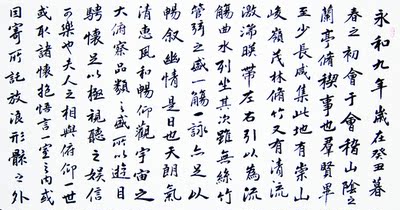 永和九年歲在癸丑暮
春之初會于會稽山陰之
蘭亭脩禊事也羣賢畢
至少長咸集此地有崇山
峻嶺茂林脩竹又有清流
激湍暎帶左右引以為流
觴曲水列坐其次雖無絲竹
管弦之盛一觴一詠亦足以
暢叙幽情是日也天朗氣
清惠風和暢仰觀宇宙之
大俯察品類之盛所以遊目
騁懷足以極視聽之娛信
可樂也夫人之相與俯仰一世
或取諸懷抱悟言一室之內或
因寄所託放浪形骸之外